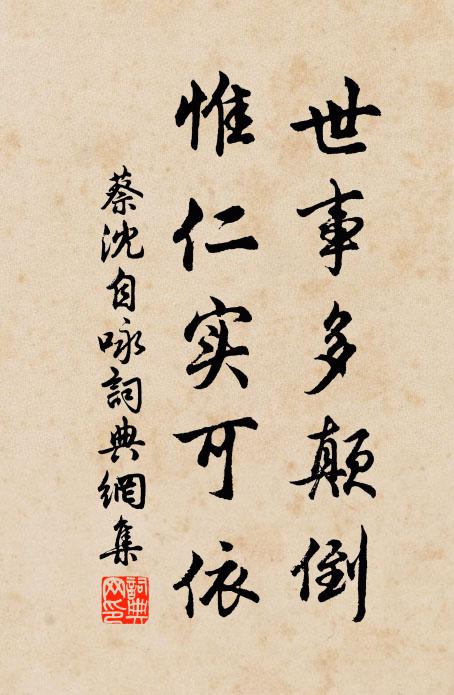 世事多颠倒
惟仁实可依
蔡沈自咏詞典網集
詞典网印